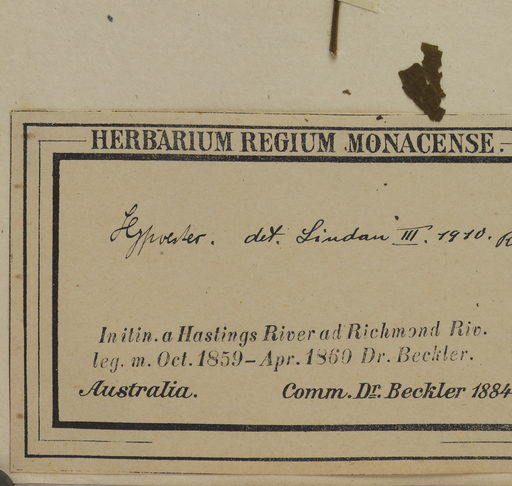 HERBARIUM REGIUM MONACENSE.
det. Lindau III. 1910.
In itin. a Hastings River ad Richmond Riv.
leg. m. Oct. 1859-Apr. 1860 Dr. Beckler.
Australia. Comm. Dr. Beckler 1884